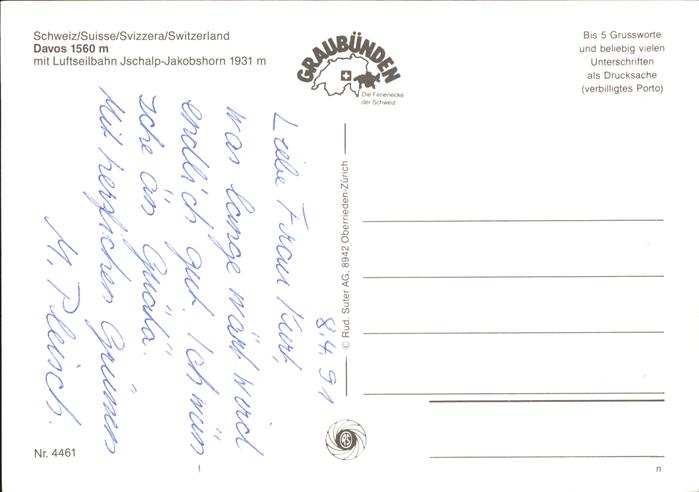 Schweiz/Suisse/Svizzera/Switzerland
Davos 1560 m
mit Luftseilbahn Jschalp-Jakobshorn 1931 m
GRAUBÜNDEN
Die Ferienecke
der Schweiz
Bis 5 Grussworte
und beliebig vielen
Unterschriften
als Drucksache
(verbilligtes Porto)
8.4.91
Liebe Frau Kurt,
was lange wärt wird
endlich gut. Ich wün-
sche än Güätä.
Mit herzlichen Grüssen
M. Pleisch.
© Rud. Suter AG, 8942 Oberrieden-Zürich
RS
Nr. 4461
n